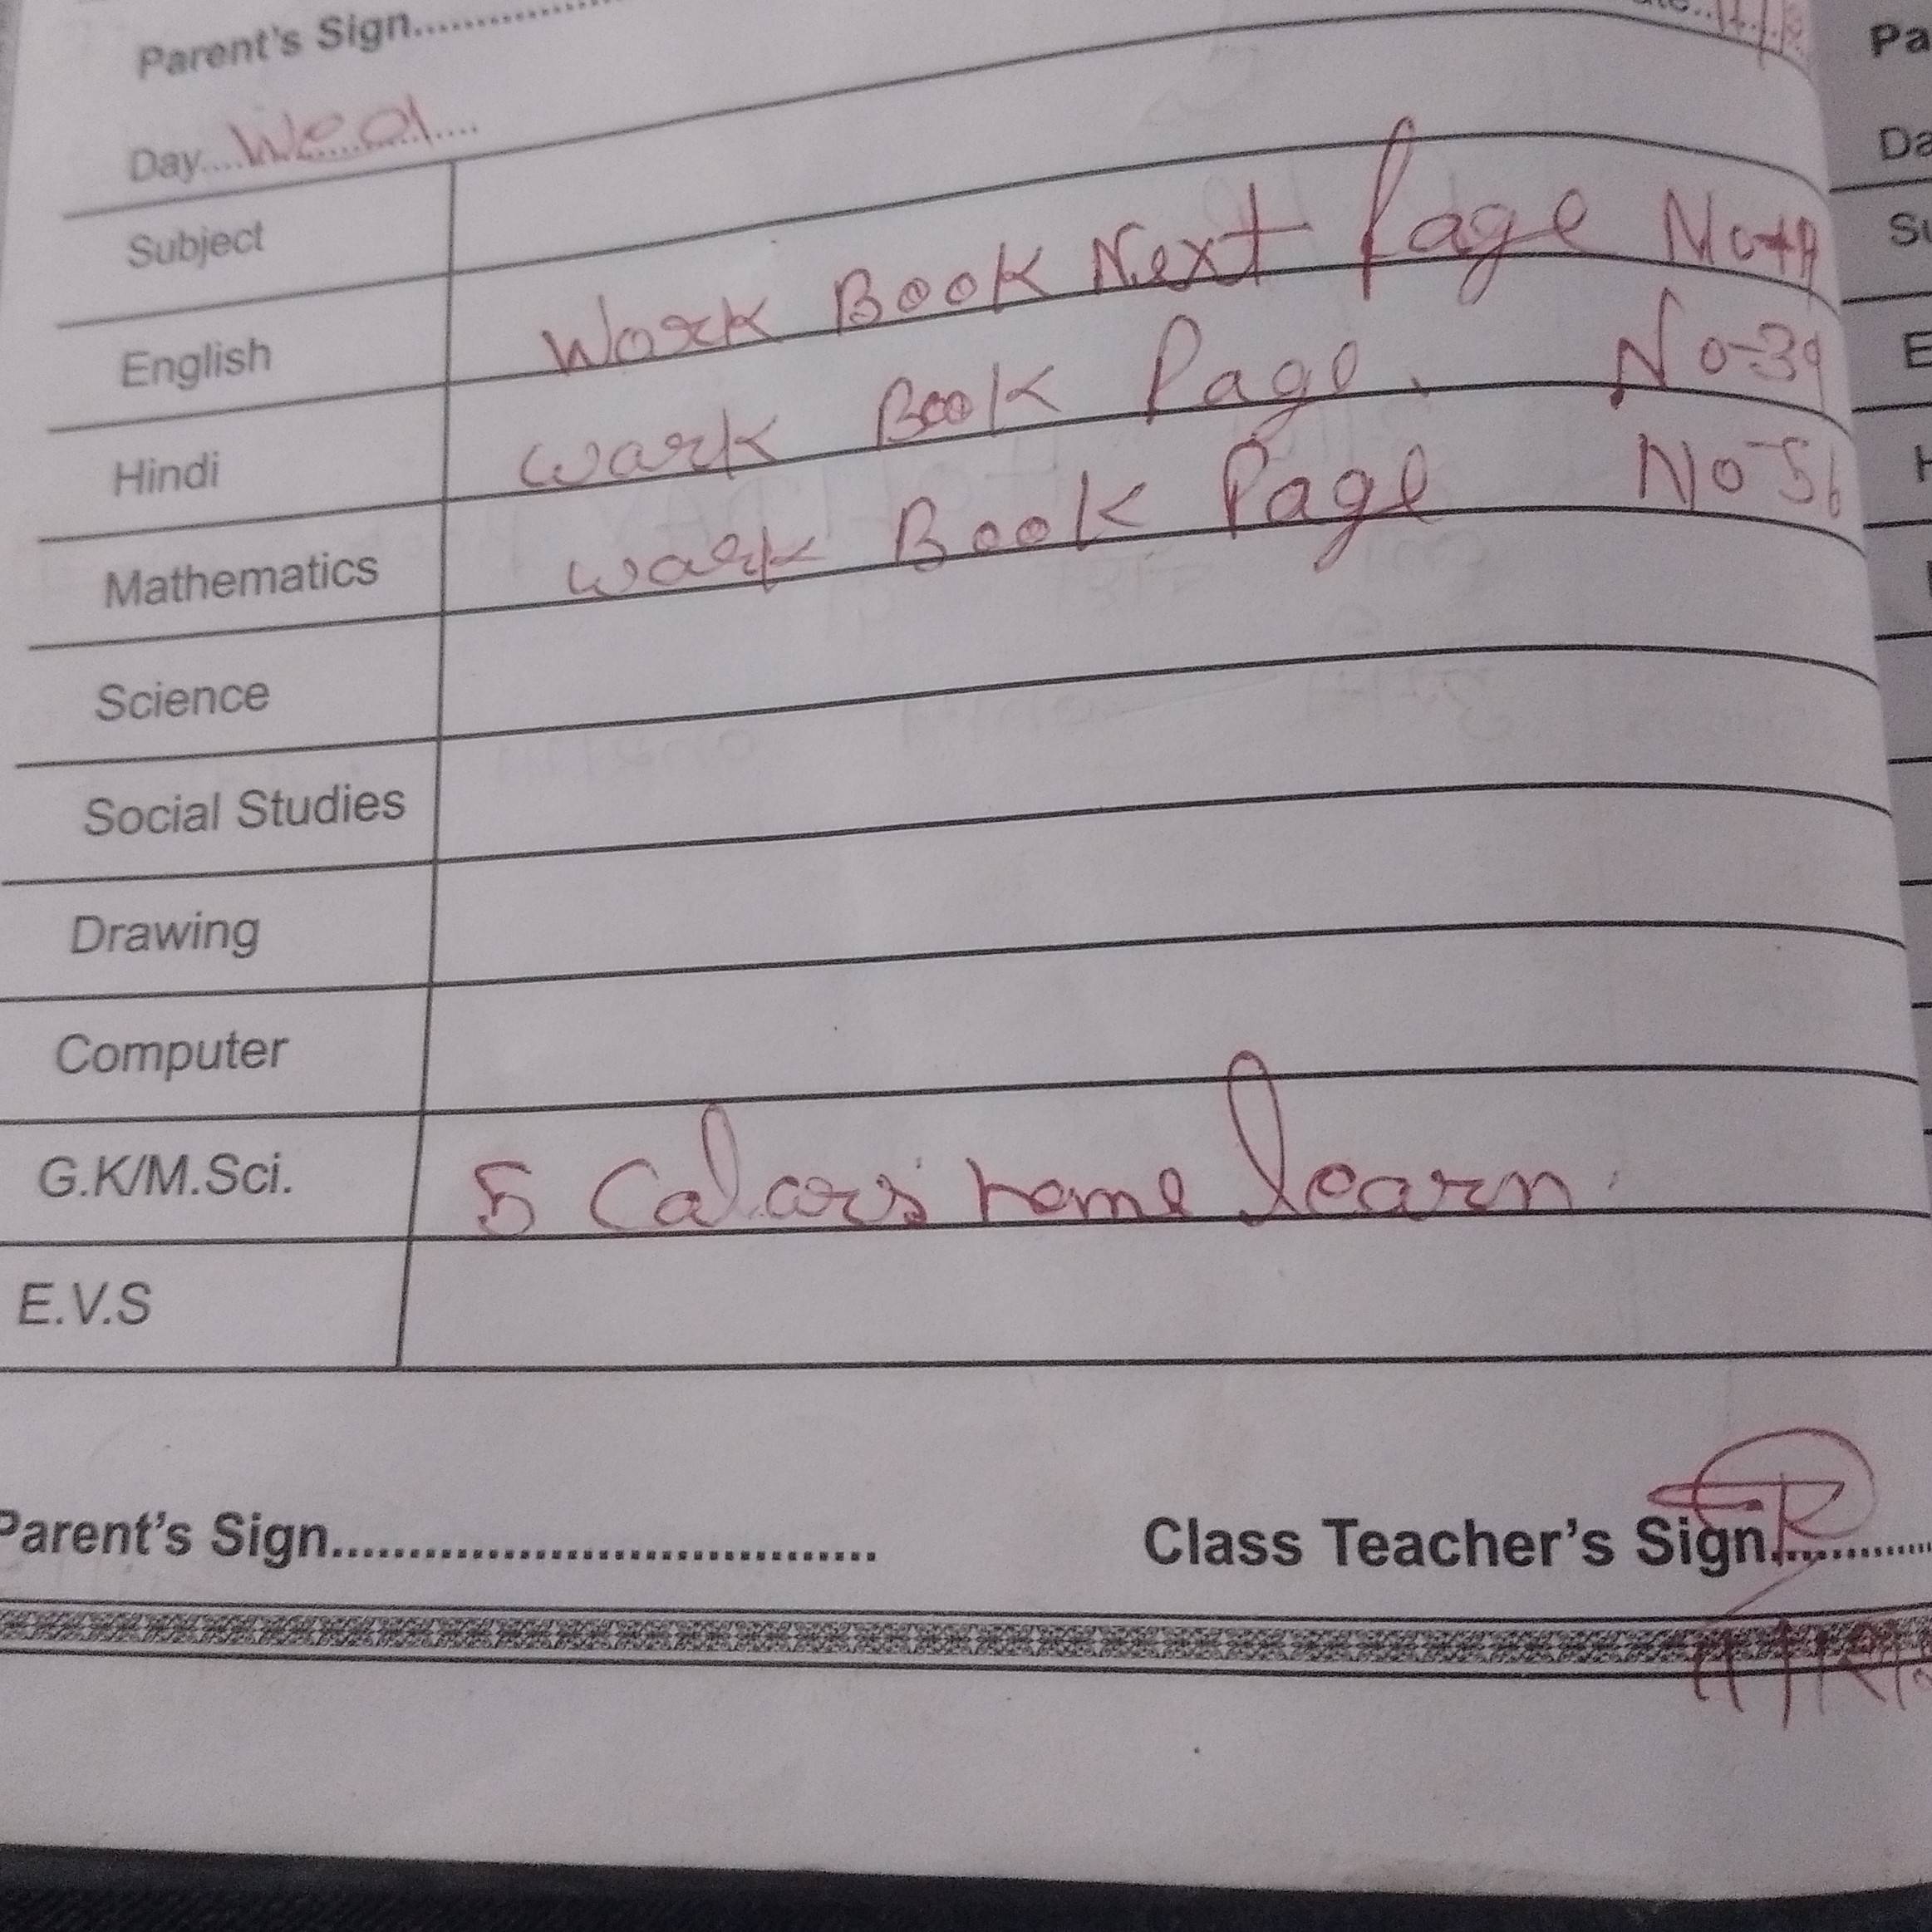 Parent's Sign..............
Day....Wed....
Subject
English Work Book Next Page
Hindi Work Book Page. No-39
Mathematics Work Book Page No-56
Science
Social Studies
Drawing
Computer
G.K/M.Sci. 5 Calours name learn.
E.V.S
Parent's Sign...................................
Class Teacher's Sign............
Pa
Da
Su
E
H